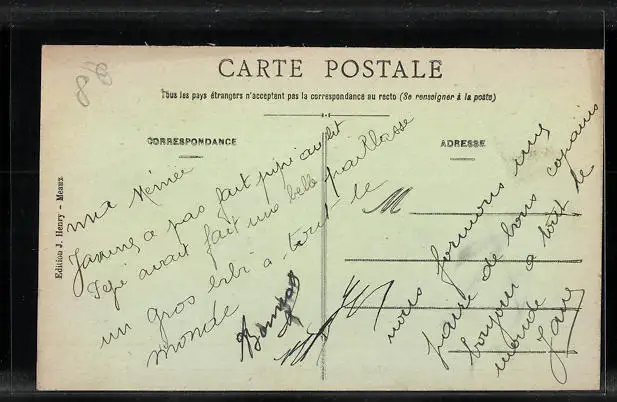 CARTE POSTALE
Tous les pays étrangers n'acceptent pas la correspondance au recto (Se renseigner à la poste)
CORRESPONDANCE
ADRESSE
Edition J. Henry - Meaux
ma Mémée
a pas fait pipi au lit
avait fait une belle paillasse
un gros a tout le
monde
M
nous formons une
paire de bons copains
bonjour a tout le
monde